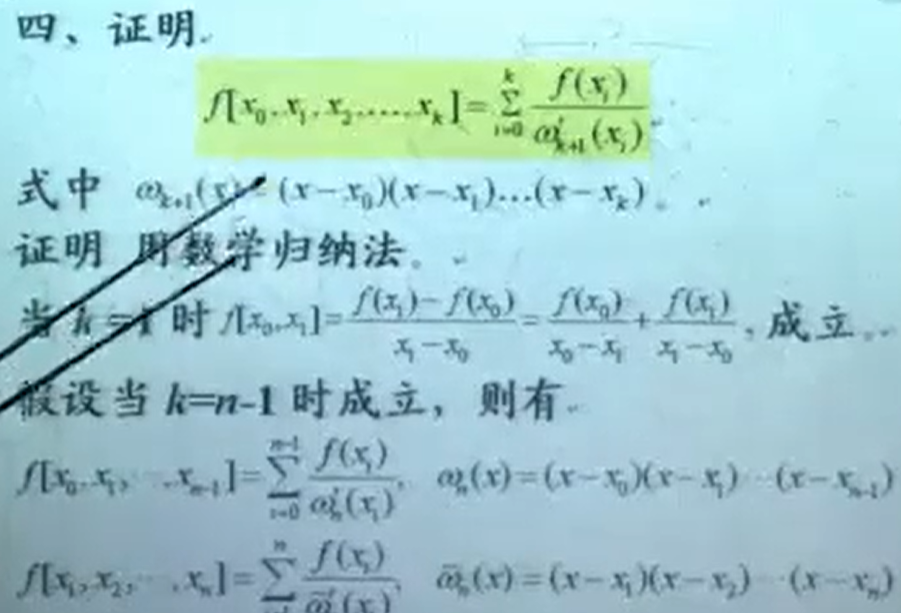 四、证明
f[x₀,x₁,x₂,…,x_k]=∑_{i=0}^{k} f(x_i)/ω′_{k+1}(x_i)
式中 ω_{k+1}(x)=(x−x₀)(x−x₁)…(x−x_k)。
证明 用数学归纳法。
当 k=1 时 f[x₀,x₁]=(f(x₁)−f(x₀))/(x₁−x₀)=f(x₀)/(x₀−x₁)+f(x₁)/(x₁−x₀),成立。
假设当 k=n-1 时成立，则有
f[x₀,x₁,…,x_{n-1}]=∑_{i=0}^{n-1} f(x_i)/ω′_n(x_i), ω_n(x)=(x−x₀)(x−x₁)…(x−x_{n-1})
f[x₁,x₂,…,x_n]=∑_{i=1}^{n} f(x_i)/ω̄′_n(x_i), ω̄_n(x)=(x−x₁)(x−x₂)…(x−x_n)